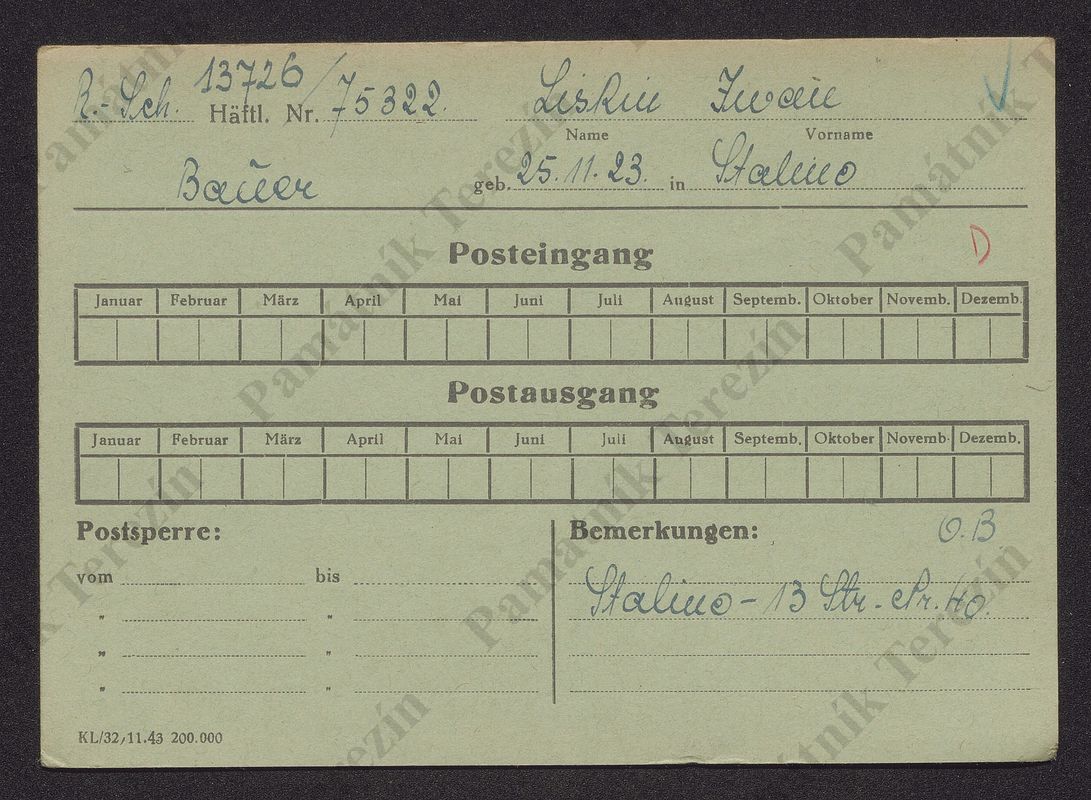 R.-Sch. Häftl. Nr. 13726/75322. Liskin Iwan
Name Vorname
Bauer geb. 25.11.23. in Stalino
Posteingang D
Januar Februar März April Mai Juni Juli August Septemb. Oktober Novemb. Dezemb.
Postausgang
Januar Februar März April Mai Juni Juli August Septemb. Oktober Novemb. Dezemb.
Postsperre:
vom bis
" "
" "
" "
Bemerkungen: O.B
Stalino - 13 Str. Nr. 40.
KL/32/11.43 200.000
Památník Terezín